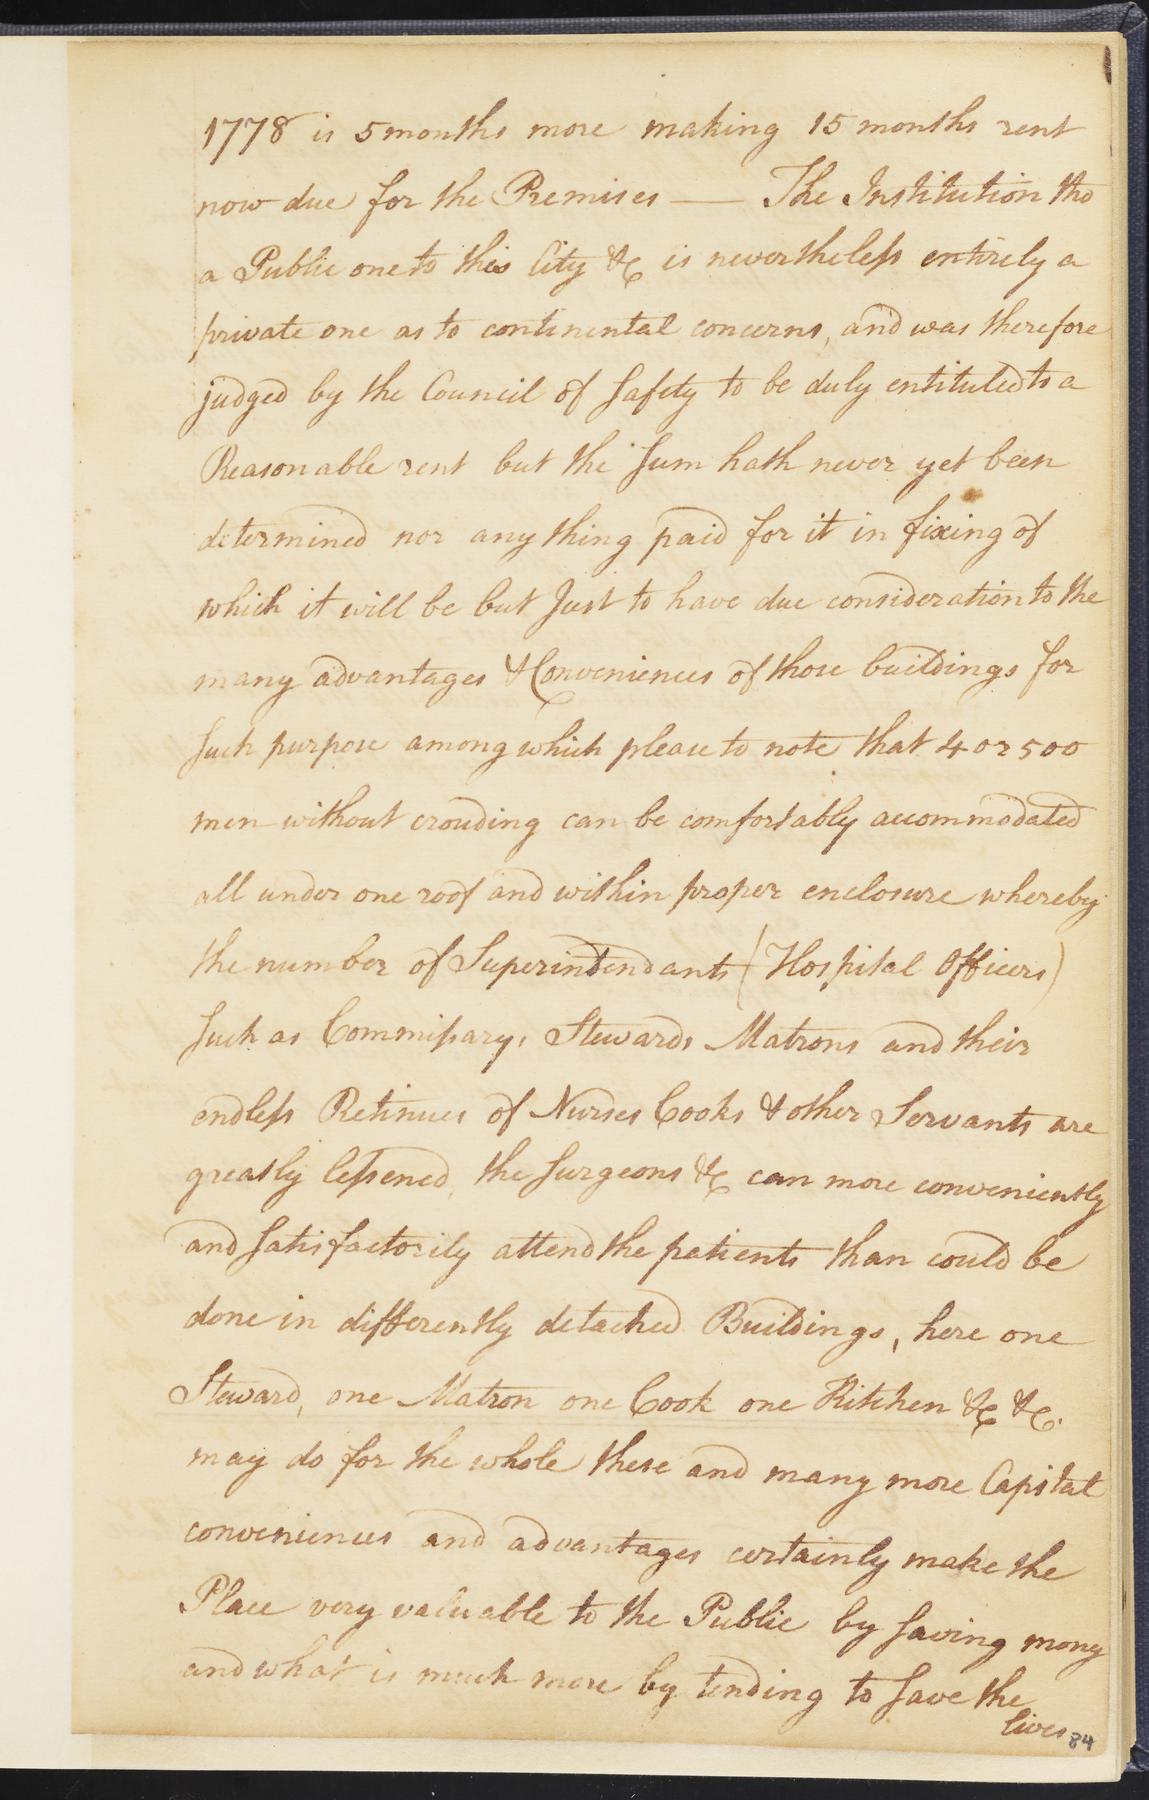 1778 is 5 months more making 15 months rent
now due for the Premises — The Institution tho
a Public one to this City &c is nevertheless entirely a
private one as to continental concerns, and was therefore
judged by the Council of Safety to be duly entituled to a
Reasonable rent but the Sum hath never yet been
determined nor any thing paid for it in fixing of
which it will be but Just to have due consideration to the
many advantages & Conveniences of those buildings for
Such purpose among which please to note that 4 or 500
men without crouding can be comfortably accommodated
all under one roof and within proper enclosure whereby
the number of Superintendants (Hospital Officers)
Such as Commissary, Stewards Matrons and their
endless Retinues of Nurses Cooks & other Servants are
greatly lessened, the Surgeons &c can more conveniently
and Satisfactorily attend the patients than could be
done in differently detached Buildings, here one
Steward, one Matron one Cook one Kitchen &c &c.
may do for the whole these and many more Capital
conveniences and advantages certainly make the
Place very valuable to the Public by Saving mony
and what is much more by tending to Save the
lives 84